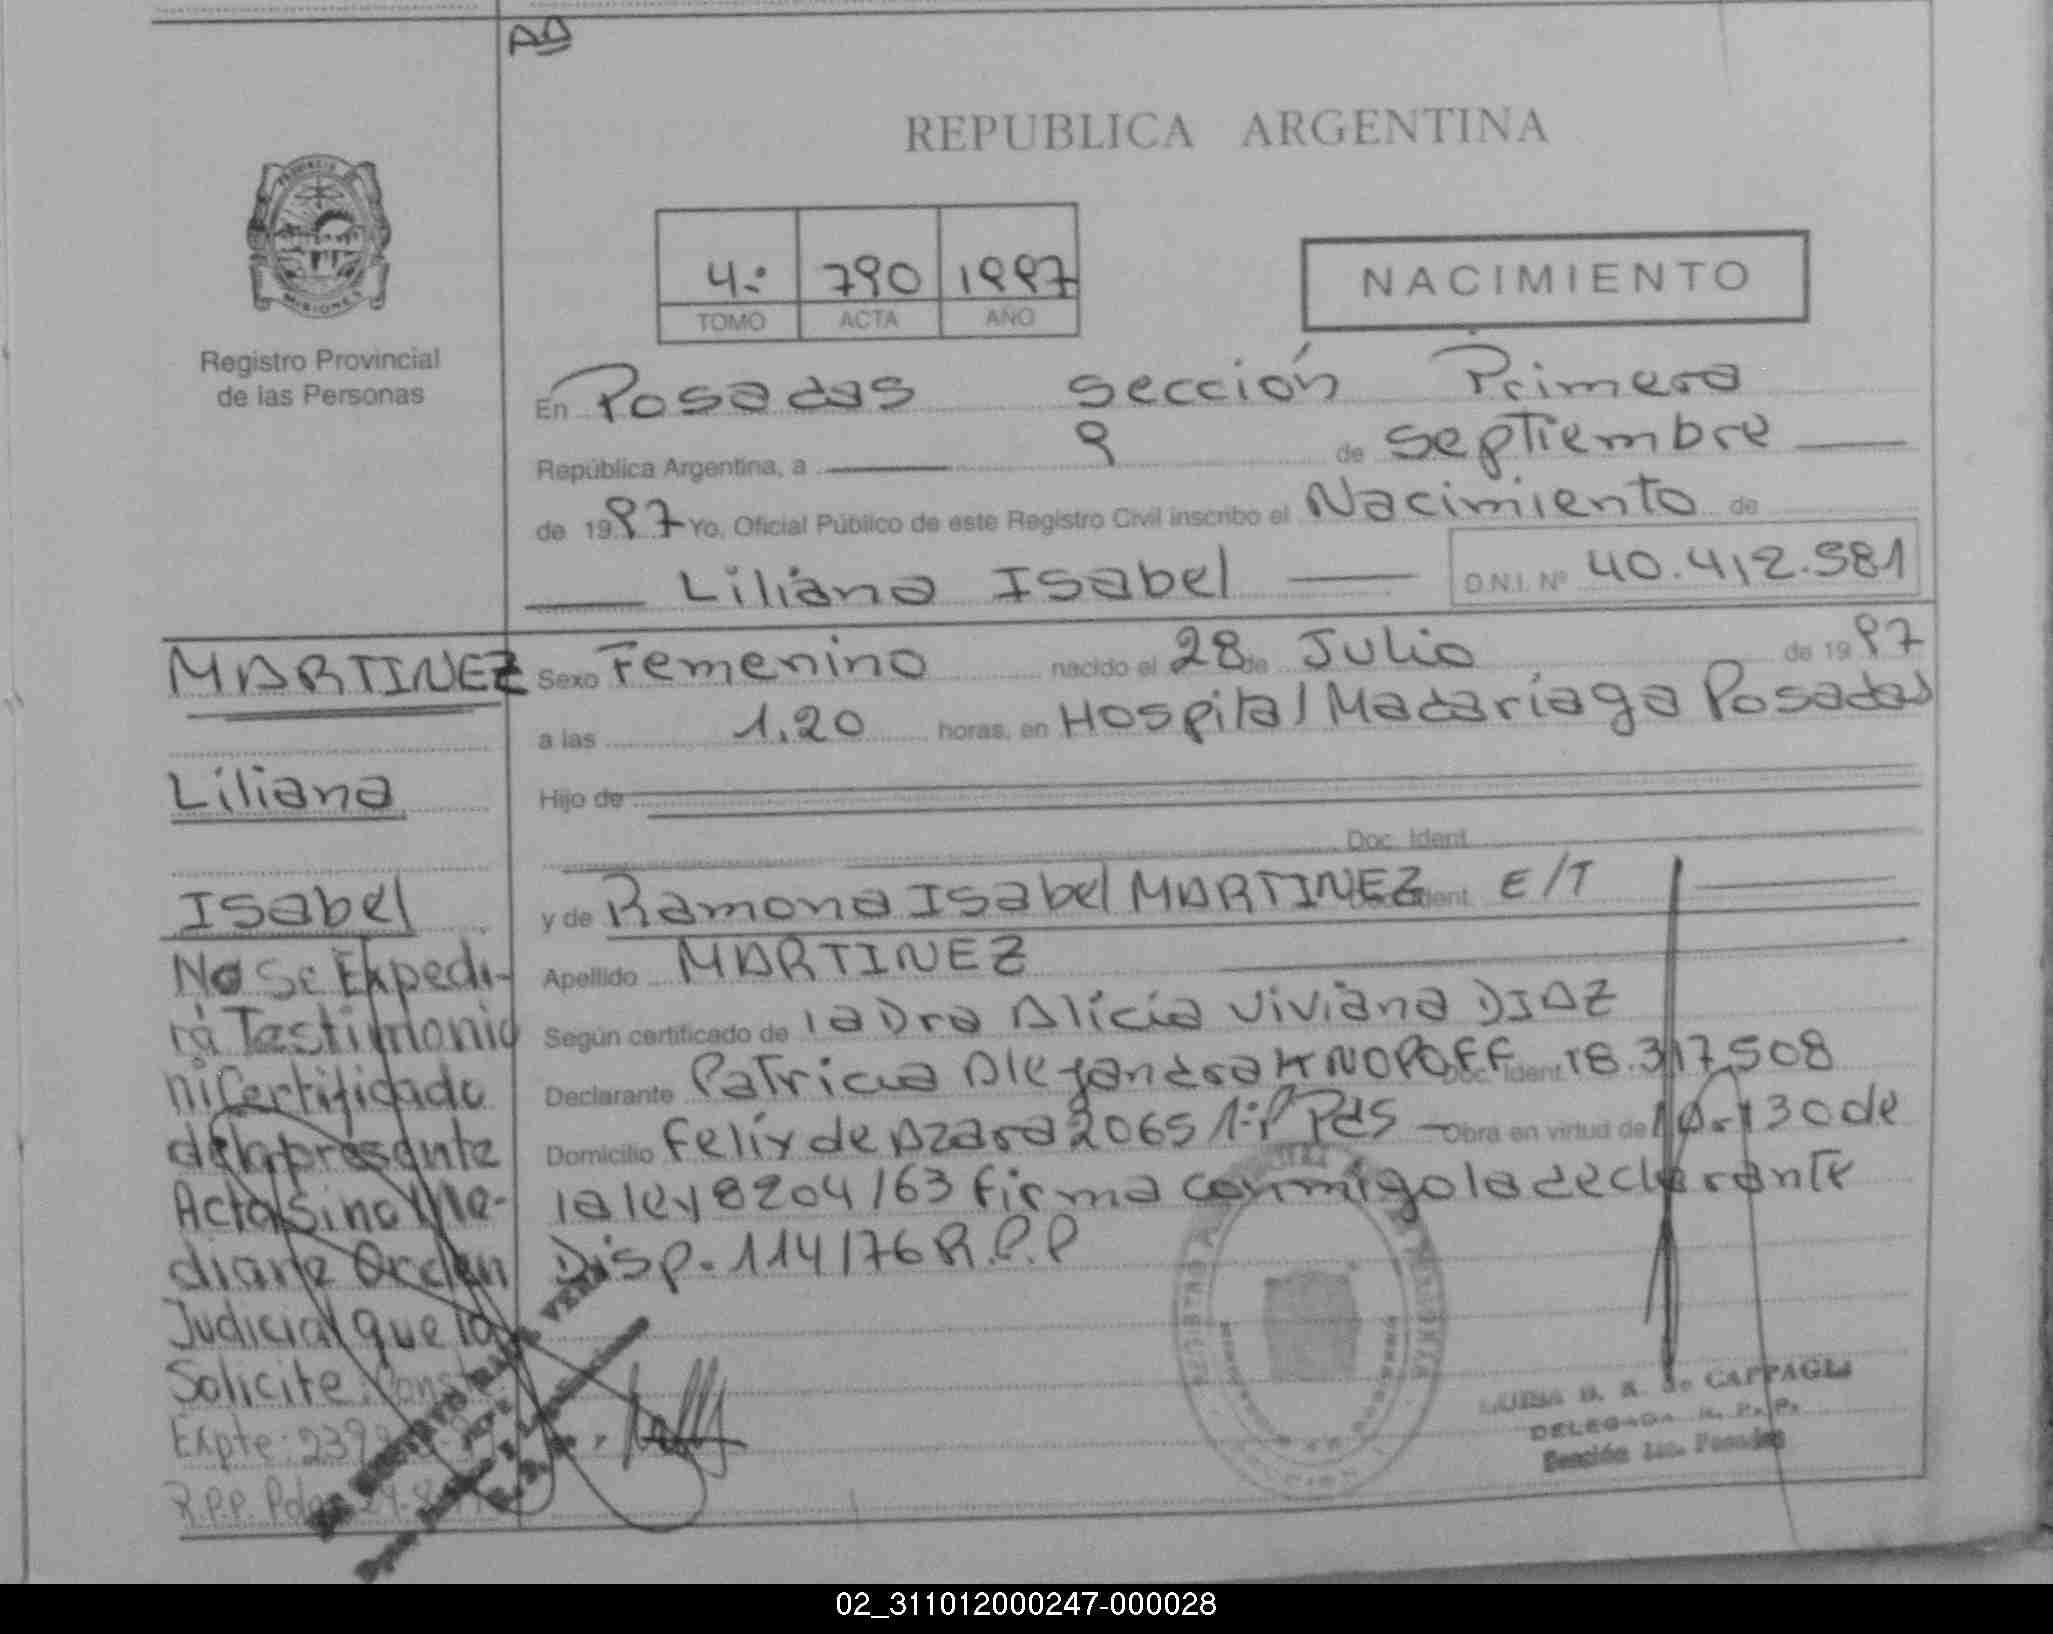 AD
REPUBLICA ARGENTINA
PROVINCIA
MISIONES
Registro Provincial
de las Personas
4.º 790 1997
TOMO ACTA AÑO
NACIMIENTO
En Posadas sección Primera
República Argentina, a 9 de septiembre
de 1997 Yo, Oficial Público de este Registro Civil inscribo el Nacimiento de
Liliana Isabel D.N.I. Nº 40.412.581
MARTINEZ
Liliana
Isabel
No Se Expedi-
rá Testimonio
ni Certificado
de la presente
Acta sino Me-
diante Orden
Judicial que la
Solicite
Expte:
R.P.P.
Sexo Femenino nacido el 28 de Julio de 1997
a las 1.20 horas, en Hospital Madariaga Posadas
Hijo de
Doc. Ident.
y de Ramona Isabel MARTINEZ Doc. Ident. E/T
Apellido MARTINEZ
Según certificado de la Dra Alicia Viviana DIAZ
Declarante Patricia Alejandra KNOPOFF Doc. Ident. 18.317.508
Domicilio Felix de Azara 2065 1:P Pds Obra en virtud de 10-130 de
la ley 8204/63 firma conmigo la declarante
Disp. 114/76 R.P.P
LUISA B. R. de CAPPAGLI
DELEGADA R. P. P.
Sección 1ra. Posadas
02_311012000247-000028